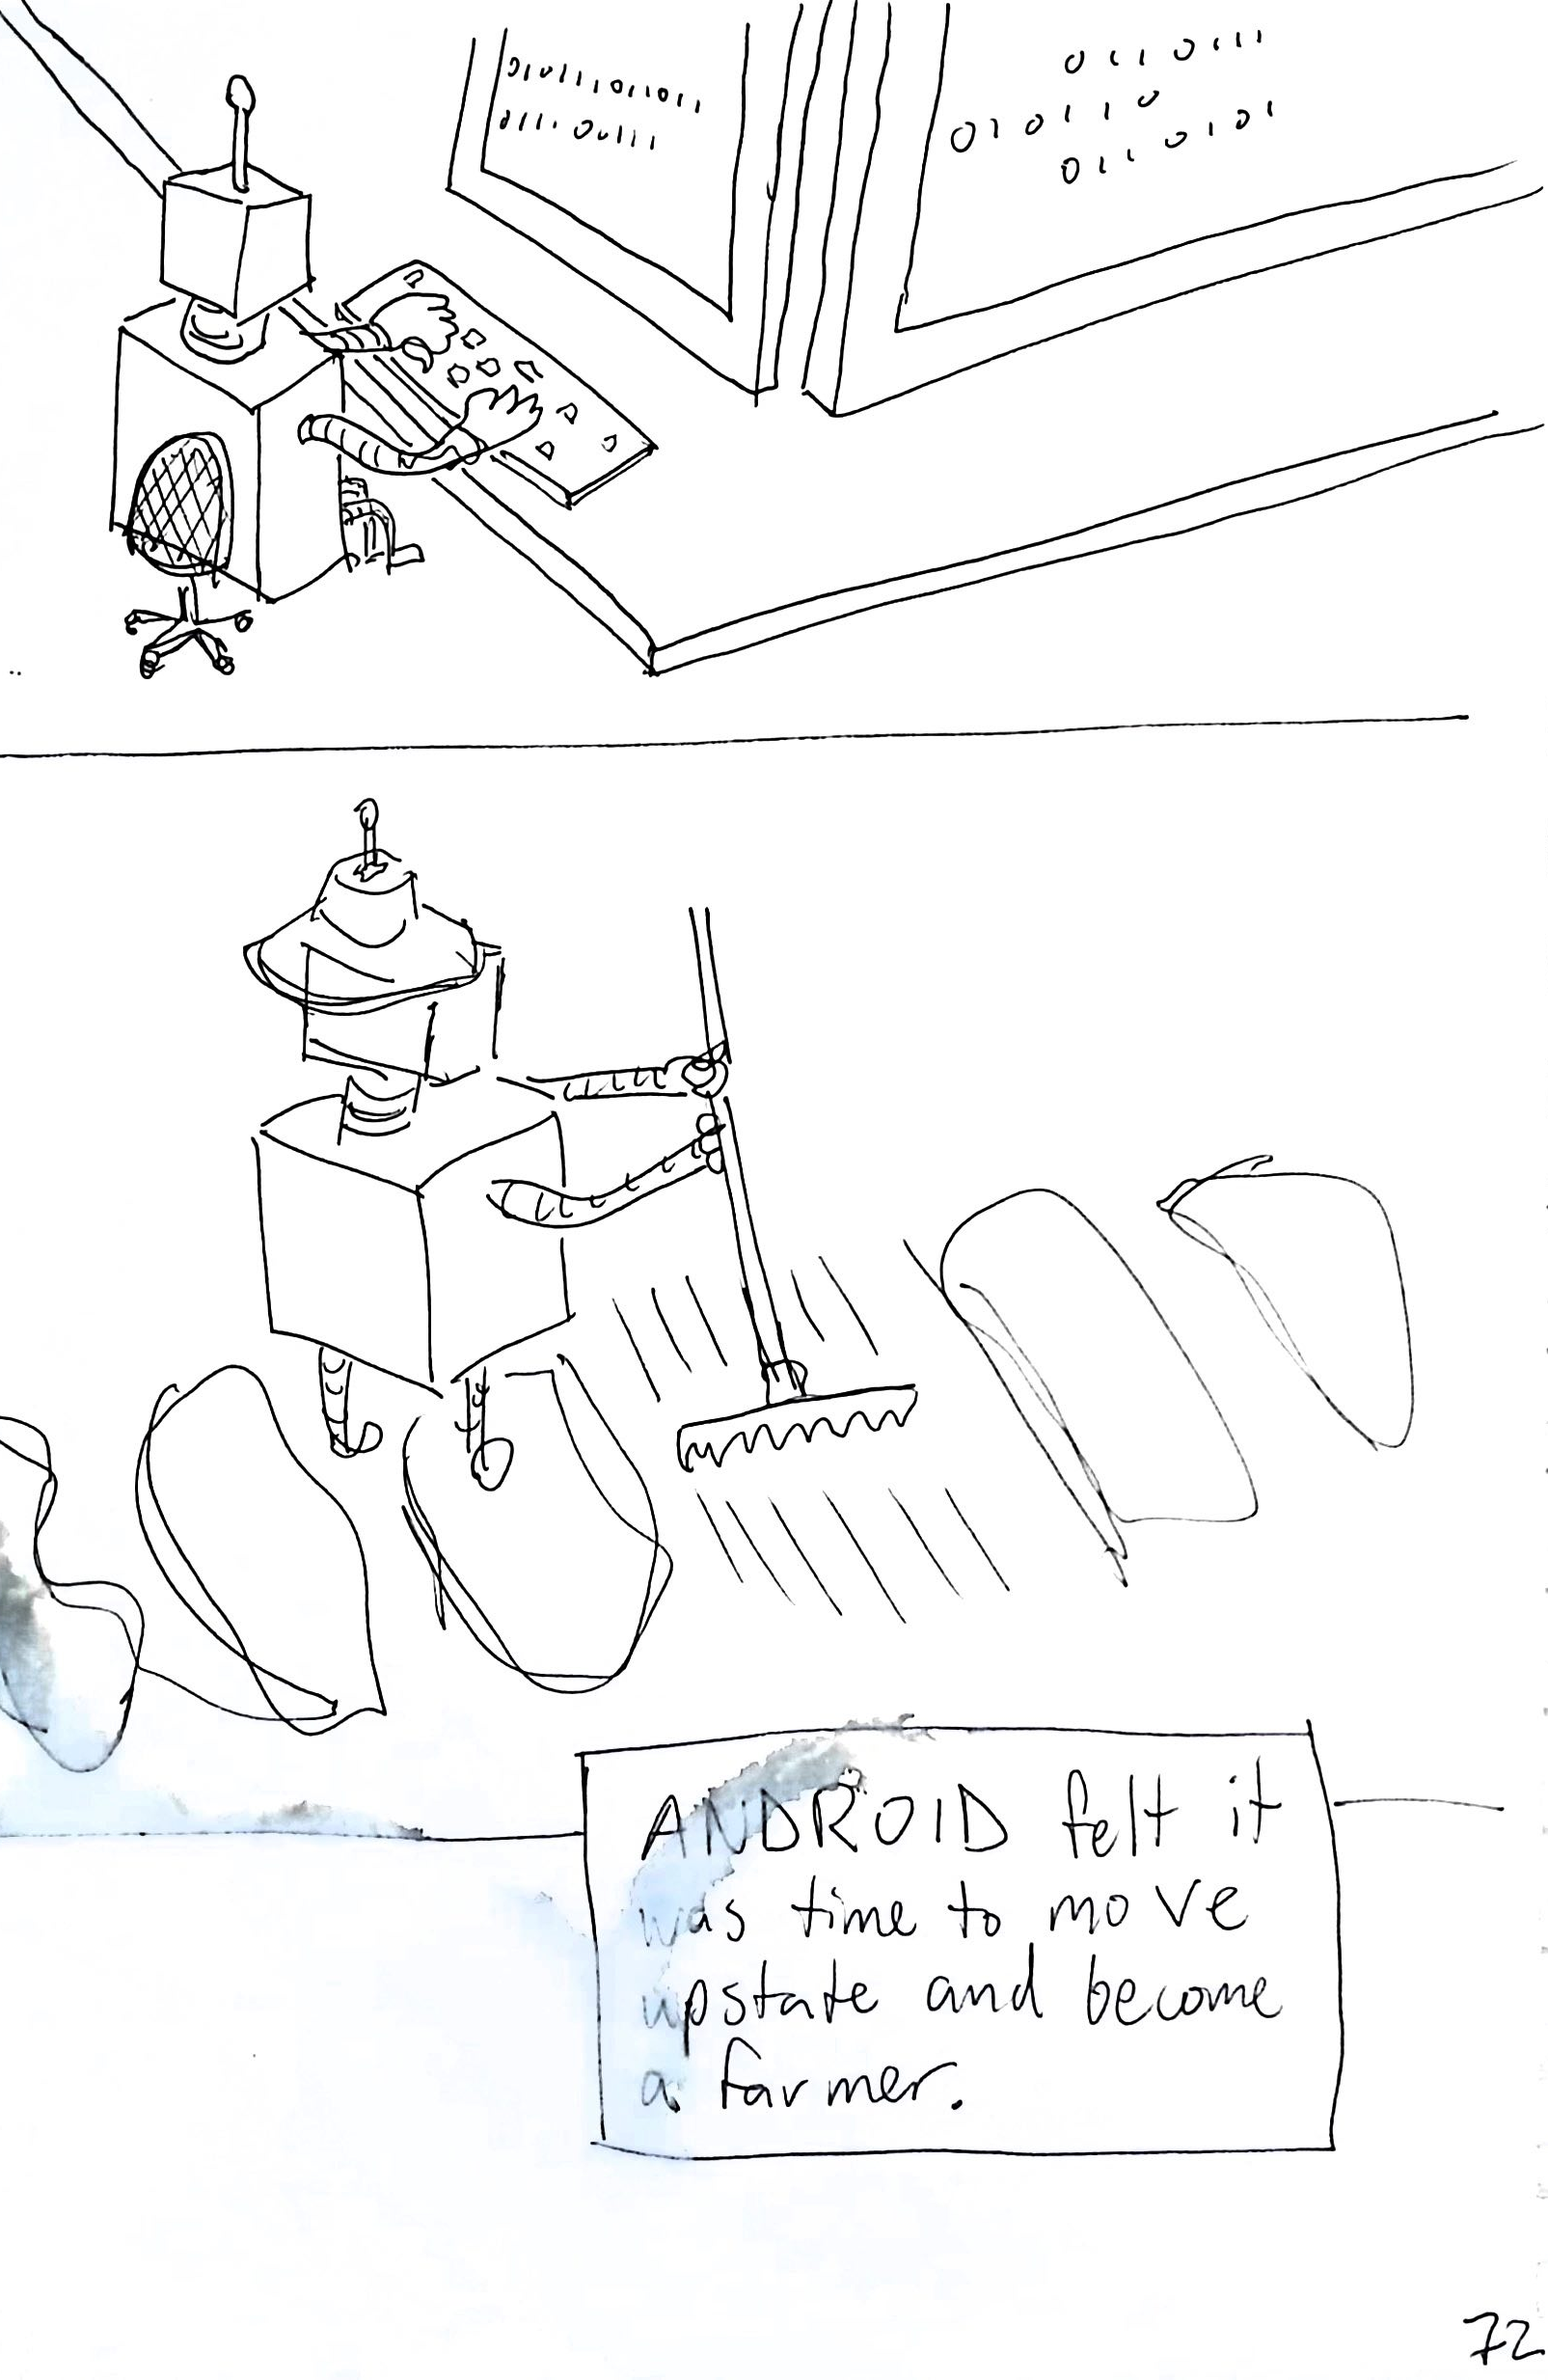 0101111011011
0111100111
0110111
0101110
0110101
ANDROID felt it
was time to move
upstate and become
a farmer.
72